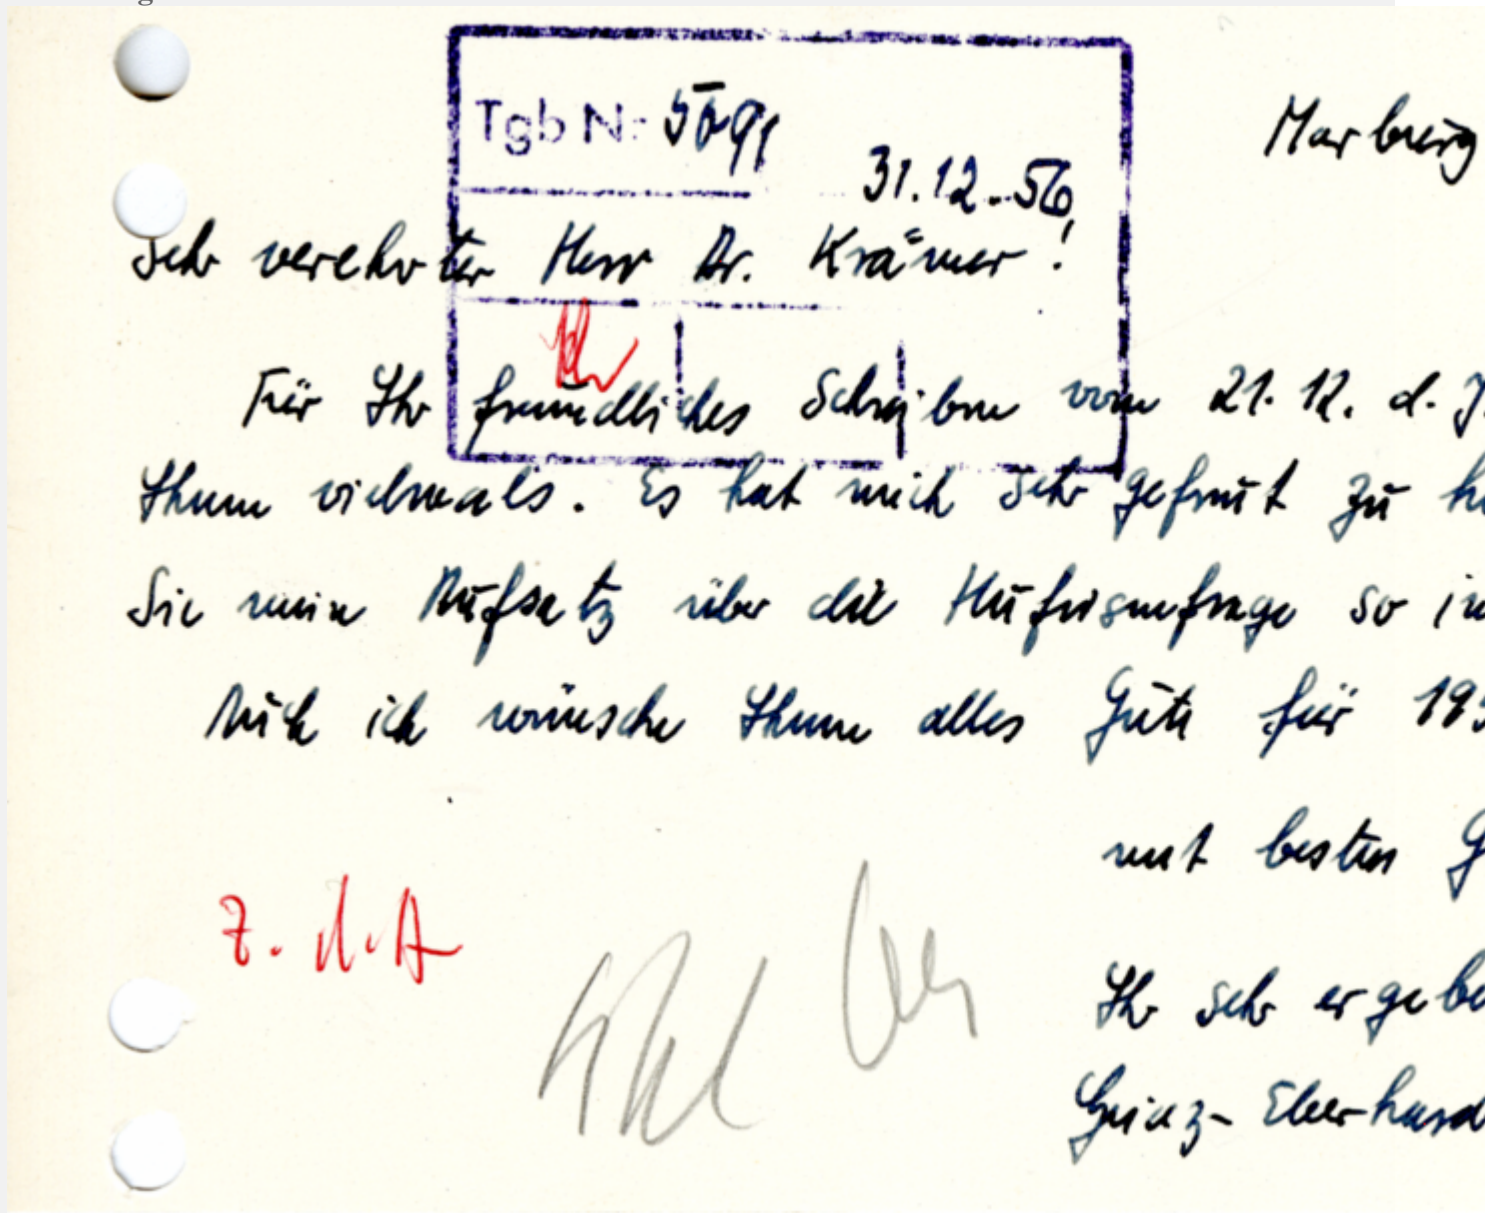 Tgb Nr. 5691
Marburg
31.12.56
Sehr verehrter Herr Dr. Krämer!
Für Ihr freundliches Schreiben vom 21.12. d. J.
Ihnen vielmals. Es hat mich sehr gefreut zu h
Sie mein Aufsatz über die so in
Auch ich wünsche Ihnen alles Gute für 195
mit besten G
Ihr sehr ergeb
Eberhard
z. d. A